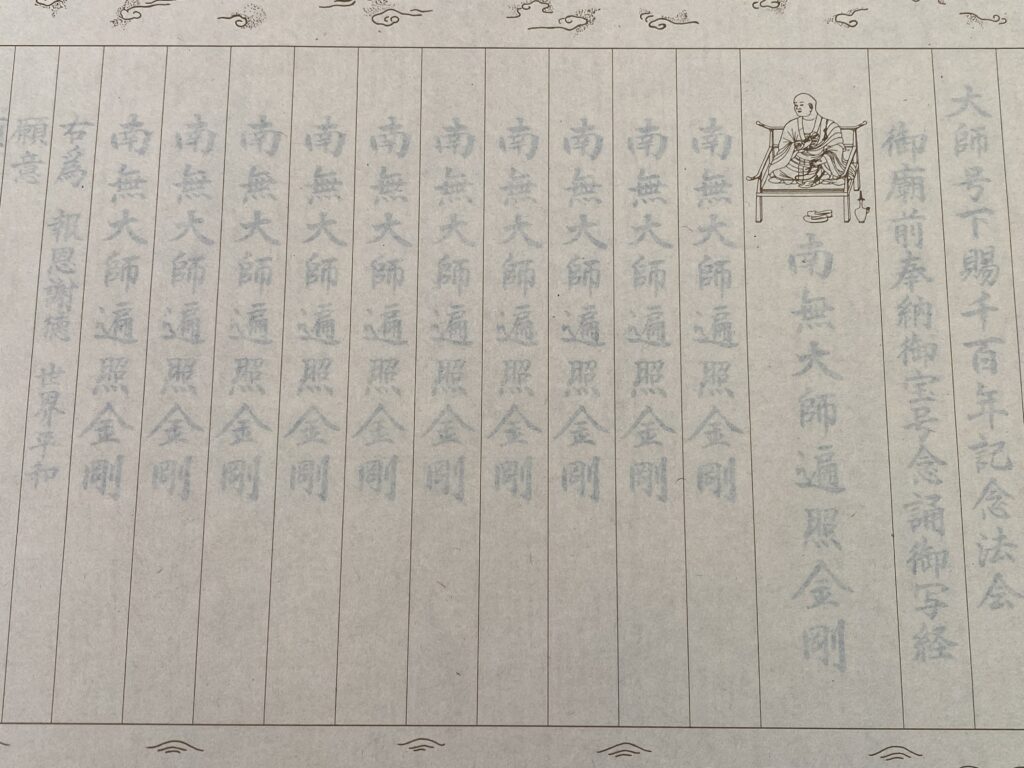 大師号下賜千百年記念法会
御廟前奉納御宝号念誦御写経
南無大師遍照金剛
南無大師遍照金剛
南無大師遍照金剛
南無大師遍照金剛
南無大師遍照金剛
南無大師遍照金剛
南無大師遍照金剛
南無大師遍照金剛
南無大師遍照金剛
南無大師遍照金剛
南無大師遍照金剛
右為 報恩謝徳 世界平和
願意